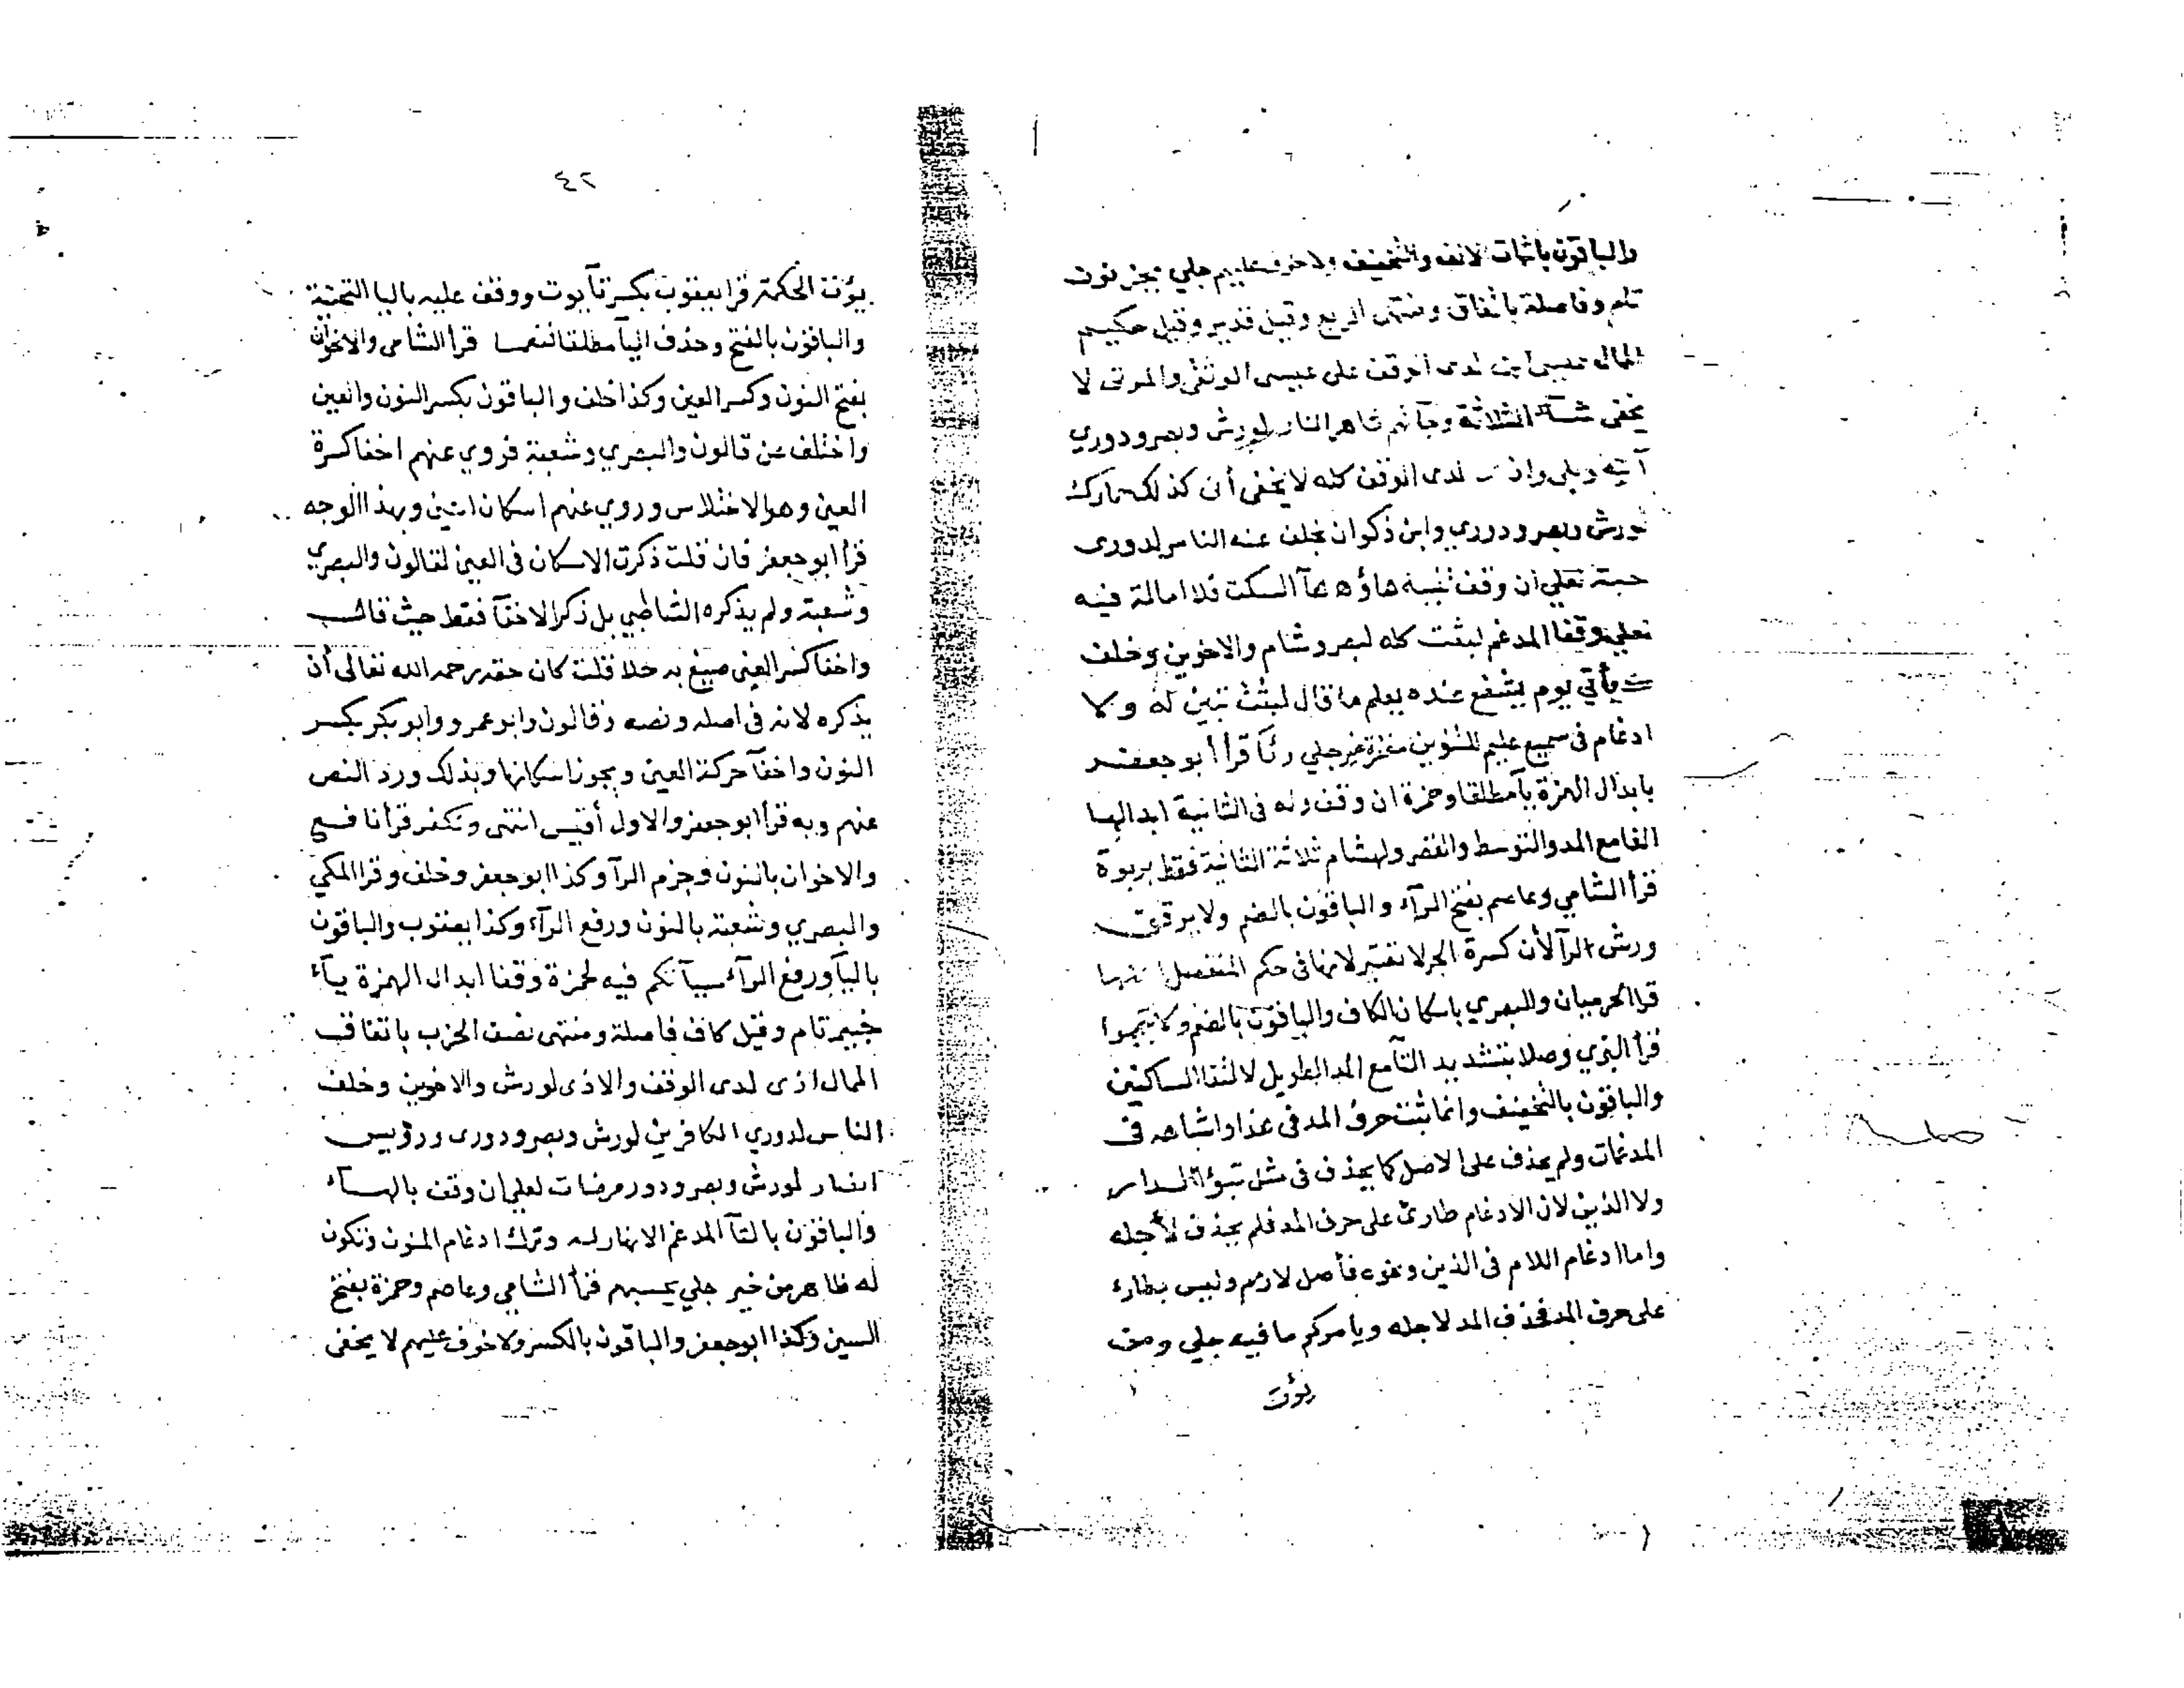 والباقون باثبات الالف والتخفيف ولا خوف عليهم جلي يحزنون
تام وفاصلة باتفاق ومنتهى الربع وقيل قدير وقيل حكيم
الممال عيسى ابن لدى الوقف على عيسى الوثقى والموتى لا
يخفى شآء الثلاثة وجآئهم ظاهر النار لورش وبصر ودوري
آتيه وبلى لدى الوقف كله لا يخفى أن كذلك حمارك
لورش وبصر ودوري وابن ذكوان بخلف عنه الناس لدوري
حبة لعلي ان وقف تنبيه هاؤه هآ السكت فلا امالة فيه
لعلي وقفا المدغم لبثت كله لبصر وشام والاخوين وخلف
يأتي يوم يشفع عنده يعلم ما قال لبثت تبين له ولا
ادغام في سميع عليم للتنوين مغفرة خير جلي رئآ قرأ أبو جعفر
بابدال الهمزة يآ مطلقا وحمزة ان وقف وله في الثانية ابدالها
الفا مع المد والتوسط والقصر ولهشام ثلاثة الثانية فقط بربوة
قرأ الشامي وعاصم بفتح الرآء والباقون بالضم ولا يرقق
ورش الرآ لأن كسرة الجر لا تعتبر لانها في حكم المنفصل
قرا الحرميان والبصري باسكان الكاف والباقون بالضم ولا تيمموا
قرأ البزي وصلا بتشديد التآ مع المد الطويل لالتقا الساكنين
والباقون بالتخفيف وانما ثبت حرف المد في هذا واشباهه في
المدغمات ولم يحذف على الاصل كما يحذف في مثل تبوؤا الدار
ولا الذين لان الادغام طارئ على حرف المد فلم يحذف لأجله
واما ادغام اللام في الذين ونحوه فأصل لازم وليس بطارء
على حرف المد فحذف المد لاجله ويامركم ما فيه جلي ومن
يؤت
٤٢
يؤت الحكمة قرا يعقوب بكسر تآ يوت ووقف عليه باليا التحتية
والباقون بالفتح وحذف اليآ مطلقا فنعما قرا الشامي والاخوان
بفتح النون وكسر العين وكذا خلف والباقون بكسر النون والعين
واختلف عن قالون والبصري وشعبة فروي عنهم اخفا كسرة
العين وهو الاختلاس وروي عنهم اسكان العين وبهذا الوجه
قرأ أبو جعفر فان قلت ذكرت الاسكان في العين لقالون والبصري
وشعبة ولم يذكره الشاطبي بل ذكر الاخفآ فقط حيث قال
واخفا كسر العين صيغ به حلا قلت كان حقه رحمه الله تعالى أن
يذكره لانه في اصله ونصه وقالون وابو عمرو وابو بكر بكسر
النون واخفآ حركة العين ويجوز اسكانها وبذلك ورد النص
عنهم وبه قرأ ابو جعفر والاول أقيس انتهى ونكفر قرأ نافع
والاخوان بالنون وجزم الرآ وكذا ابو جعفر وخلف وقرا المكي
والبصري وشعبة بالنون ورفع الرآء وكذا يعقوب والباقون
باليآ ورفع الرآء سيآتكم فيه لحمزة وقفا ابدال الهمزة يآء
خبير تام وقيل كاف فاصلة ومنتهى نصف الحزب باتفاق
الممال اذى لدى الوقف والاذى لورش والاخوين وخلف
الناس لدوري الكافرين لورش وبصر ودوري ورويس
انصار لورش وبصر ودور مرضات لعلي ان وقف بالهآء
والباقون بالتآ المدغم الانهار له وترك ادغام النون وتكون
له ظاهر من خير جلي يحسبهم قرأ الشامي وعاصم وحمزة بفتح
السين وكذا ابو جعفر والباقون بالكسر ولا خوف عليهم لا يخفى